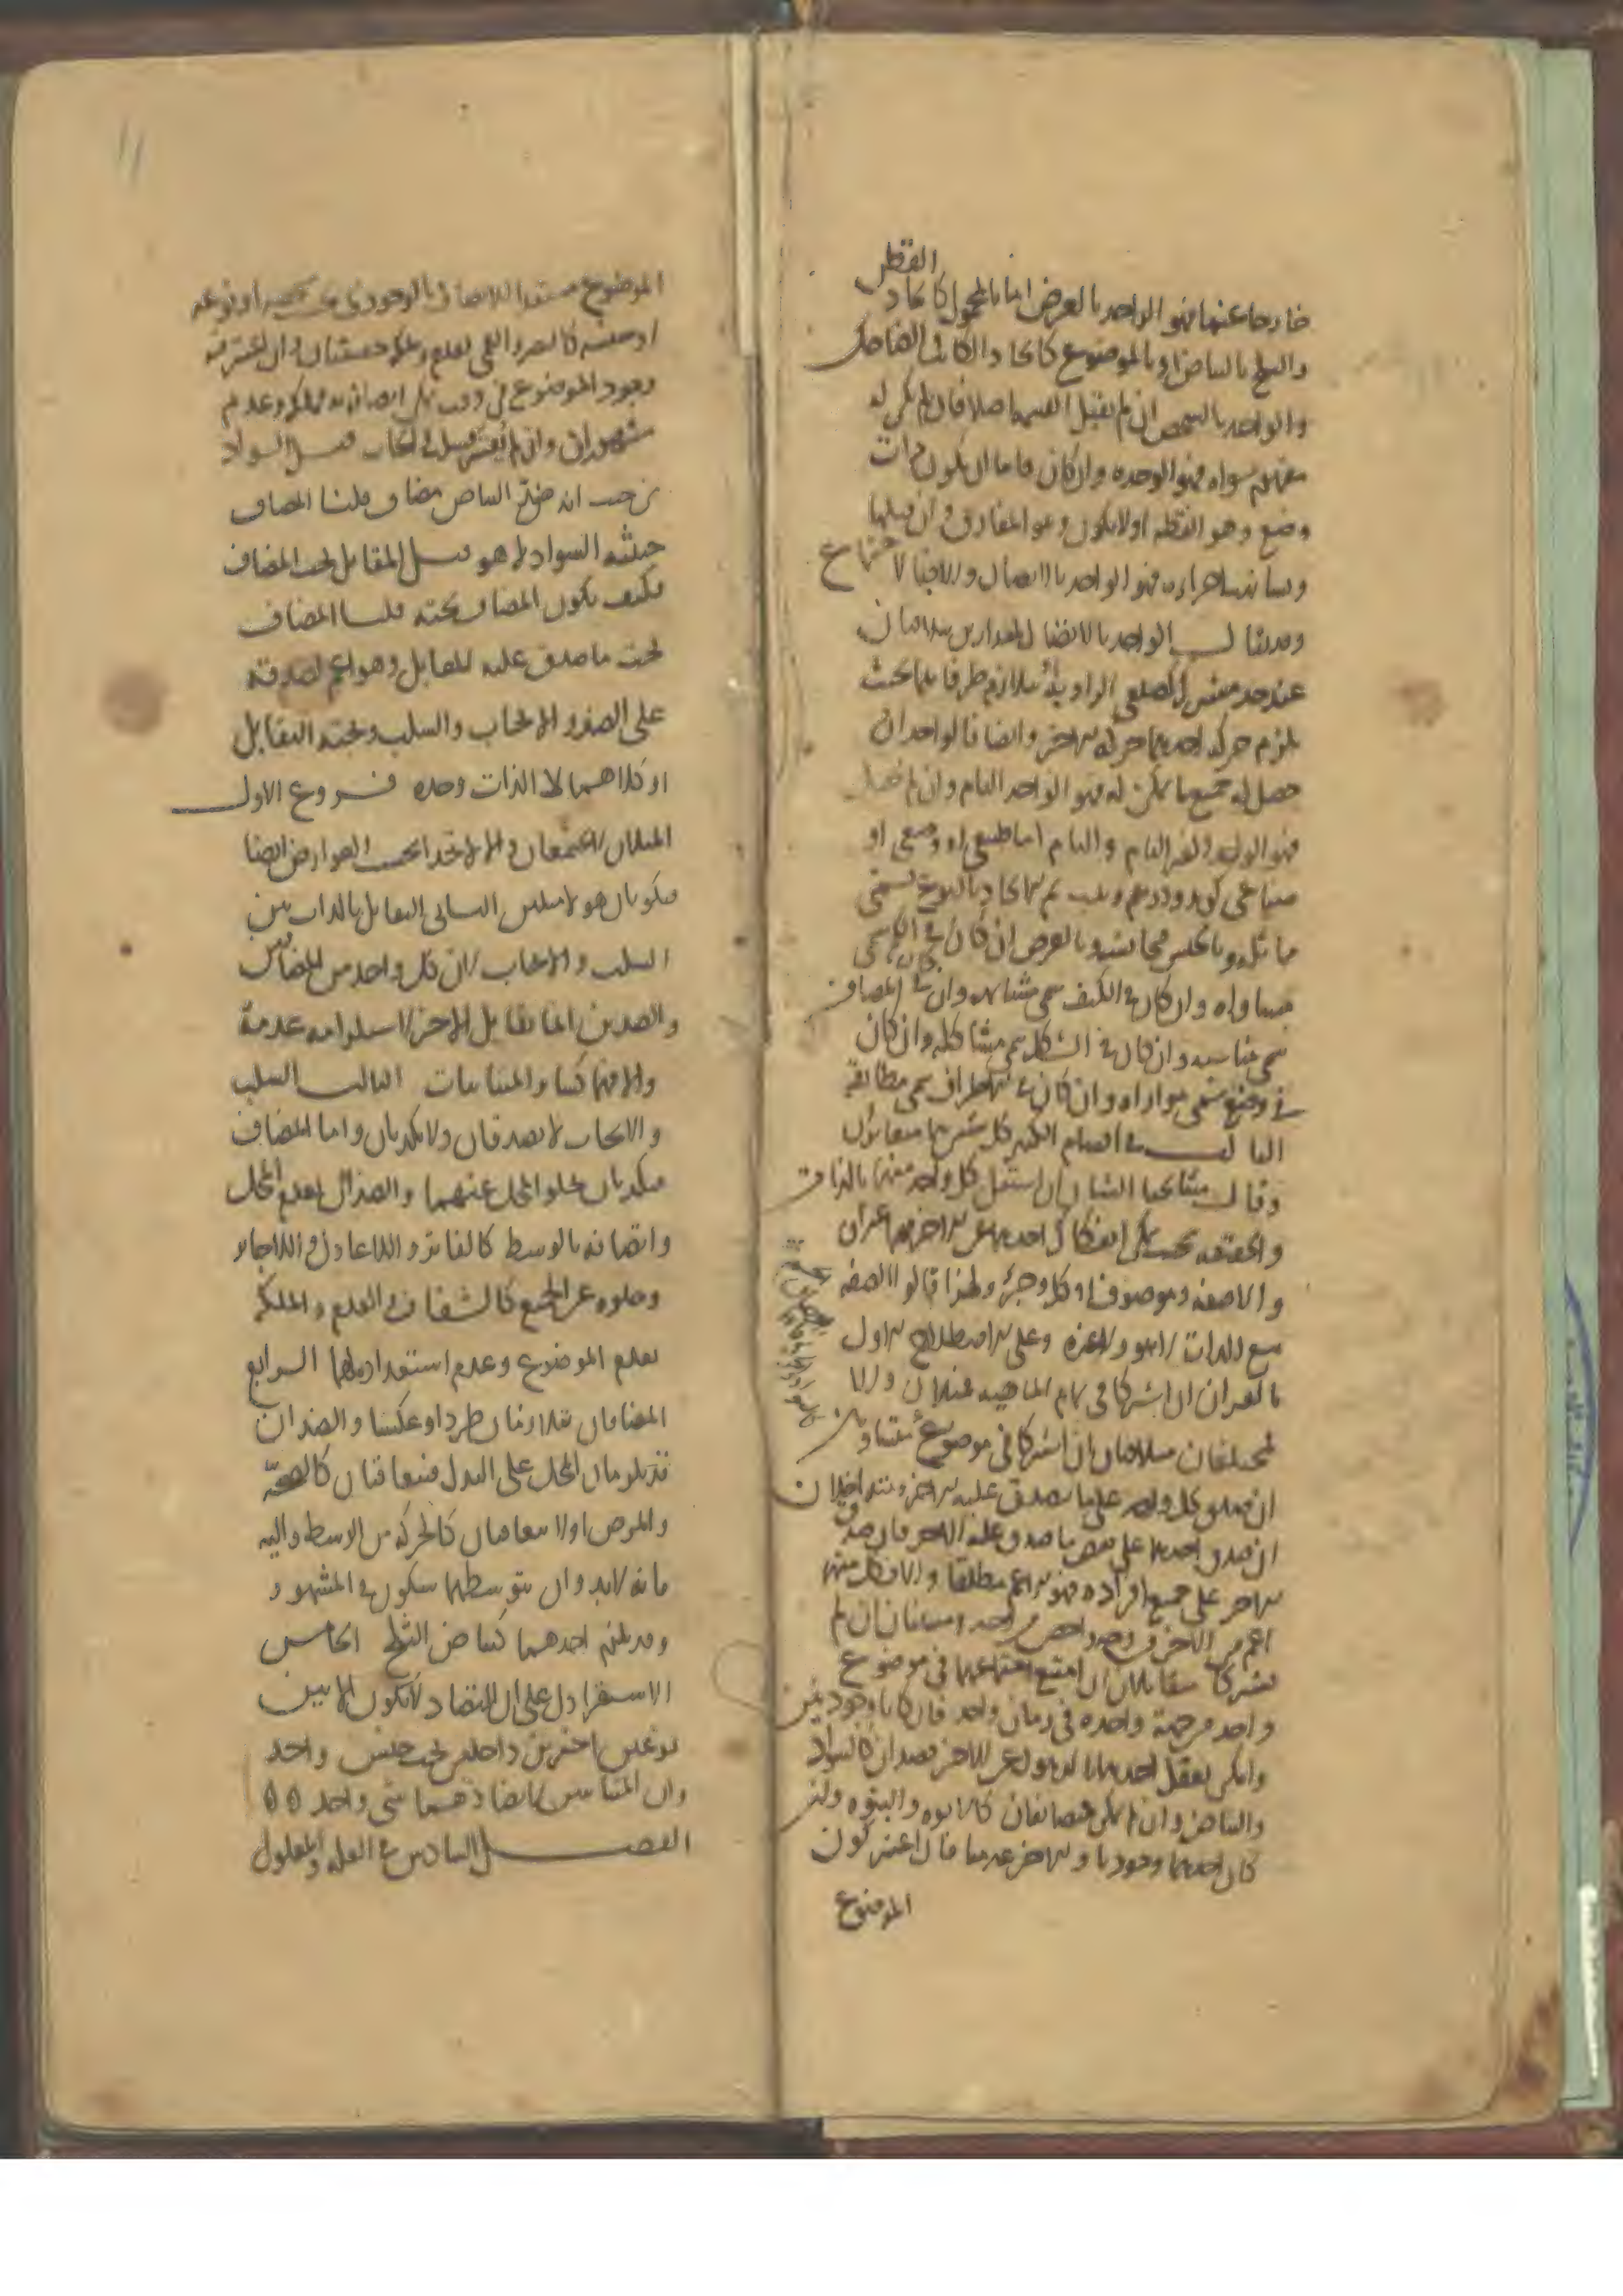 القطن
خارجا عنها فهو الواحد بالعرض اما بالمحمول كاتحاد
والثلج بالبياض او بالموضوع كاتحاد الكاتب الضاحك
والواحد بالشخص ان لم يقبل القسمة اصلا فان لم يكن له
مفهوم سواه فهو الوحدة وان كان فاما ان يكون ذات
وضع وهو النقطة اولا يكون وهو المفارق وان قبلها
وتشابهت اجزاءه فهو الواحد بالاتصال والا فبالاجتماع
وقد يقال الواحد بالاتصال لمقدارين يتلاقيان
عند حد مشترك كضلعي الزاوية او يتلازم طرفاهما بحيث
يلزم حركة احدهما حركة الاخر وايضا فالواحد ان
حصل له جميع ما يمكن له فهو الواحد التام وان لم يحصل
فهو الواحد الغير التام والتام اما طبيعي او وضعي او
صناعي كزيد ودرهم وبيت ثم الاتحاد بالنوع يسمى
مماثلة وبالجنس مجانسة وبالعرض ان كان في الكم سمي
مساواة وان كان في الكيف سمي مشابهة وان كان في المضاف
سمي مناسبة وان كان في الشكل سمي مشاكلة وان كان
في وضع سمي موازاة وان كان في الاطراف سمي مطابقة
الثالث في اقسام الكثير كل شيئين هما متغايران
وقال مشايخنا الشيئان ان استقل كل واحد منهما بالذات
والحقيقة بحيث يمكن انفكاك احدهما عن الاخر فهما غيران
والا صفة وموصوف او كل وجزء ولهذا قالوا الصفة
مع الذات لا هو ولا غيره وعلى الاصطلاح الاول
فالغيران ان اشتركا في تمام الماهية فمثلان والا
فمختلفان متلاقيان ان اشتركا في موضوع متساويان
ان صدق كل واحد على ما يصدق عليه الاخر متداخلان
ان صدق احدهما على بعض ما صدق عليه الاخر فان صدق
الاخر على جميع افراده فهو الاعم مطلقا والا فكل منهما
اعم من الاخر من وجه واخص من وجه ومتباينان ان لم
يشتركا متقابلان ان امتنع اجتماعهما في موضوع
واحد من جهة واحدة في زمان واحد فان كانا وجوديين
وامكن تعقل احدهما بالذهول عن الاخر فضدان كالسواد
والبياض وان لم يمكن فمضافان كالابوة والبنوة وان
كان احدهما وجوديا والاخر عدميا فان اعتبر كون
الموضوع
١١
الموضوع مستعدا للاتصاف بالوجودي بحسب شخصه او نوعه
او جنسه كالبصر والعمى فعدم وملكة حقيقيان وان اعتبر فيه
وجود الموضوع في وقت يمكن اتصافه به فملكة وعدم
مشهوران وان لم يعتبر فسلب وايجاب قيل السواد
من حيث انه ضد البياض مضاف قلنا المضاف
حيثية السواد لا هو قيل المقابل تحت المضاف
فكيف يكون المضاف تحته قلنا المضاف
تحت ما صدق عليه المقابل وهو اعم لصدقه
على الضد والايجاب والسلب وتحته التقابل
او كلاهما لا الذات وحده فروع الاول
المثلان لا يجتمعان والا لاتحدا بحسب العوارض ايضا
فيكونان هو لا مثلين الثاني التقابل بالذات بين
السلب والايجاب لان كل واحد من المضافين
والضدين انما يقابل الاخر لاستلزامه عدمه
والا فهما كسائر المتباينات الثالث السلب
والايجاب لا يصدقان ولا يكذبان واما المضاف
فيكذبان لخلو المحل عنهما والضدان لعدم المحل
واتصافه بالوسط كالفاتر واللاعادل واللاجائر
وخلوه عن الجميع كالشفاف والعدم والملكة
لعدم الموضوع وعدم استعداده لهما الرابع
المضافان متلازمان طردا وعكسا والضدان
قد يلزمان المحل على البدل فيتعاقبان كالصحة
والمرض او لا يتعاقبان كالحركة من الوسط واليه
فانه لا بد وان يتوسطهما سكون في المشهور
وقد يلزم احدهما كبياض الثلج الخامس
الاستقراء دل على ان التضاد لا يكون الا بين
نوعين اخيرين داخلين تحت جنس واحد
وان المتباينين لا يضادهما شيء واحد ٥٥
الفصل السادس في العلة والمعلول